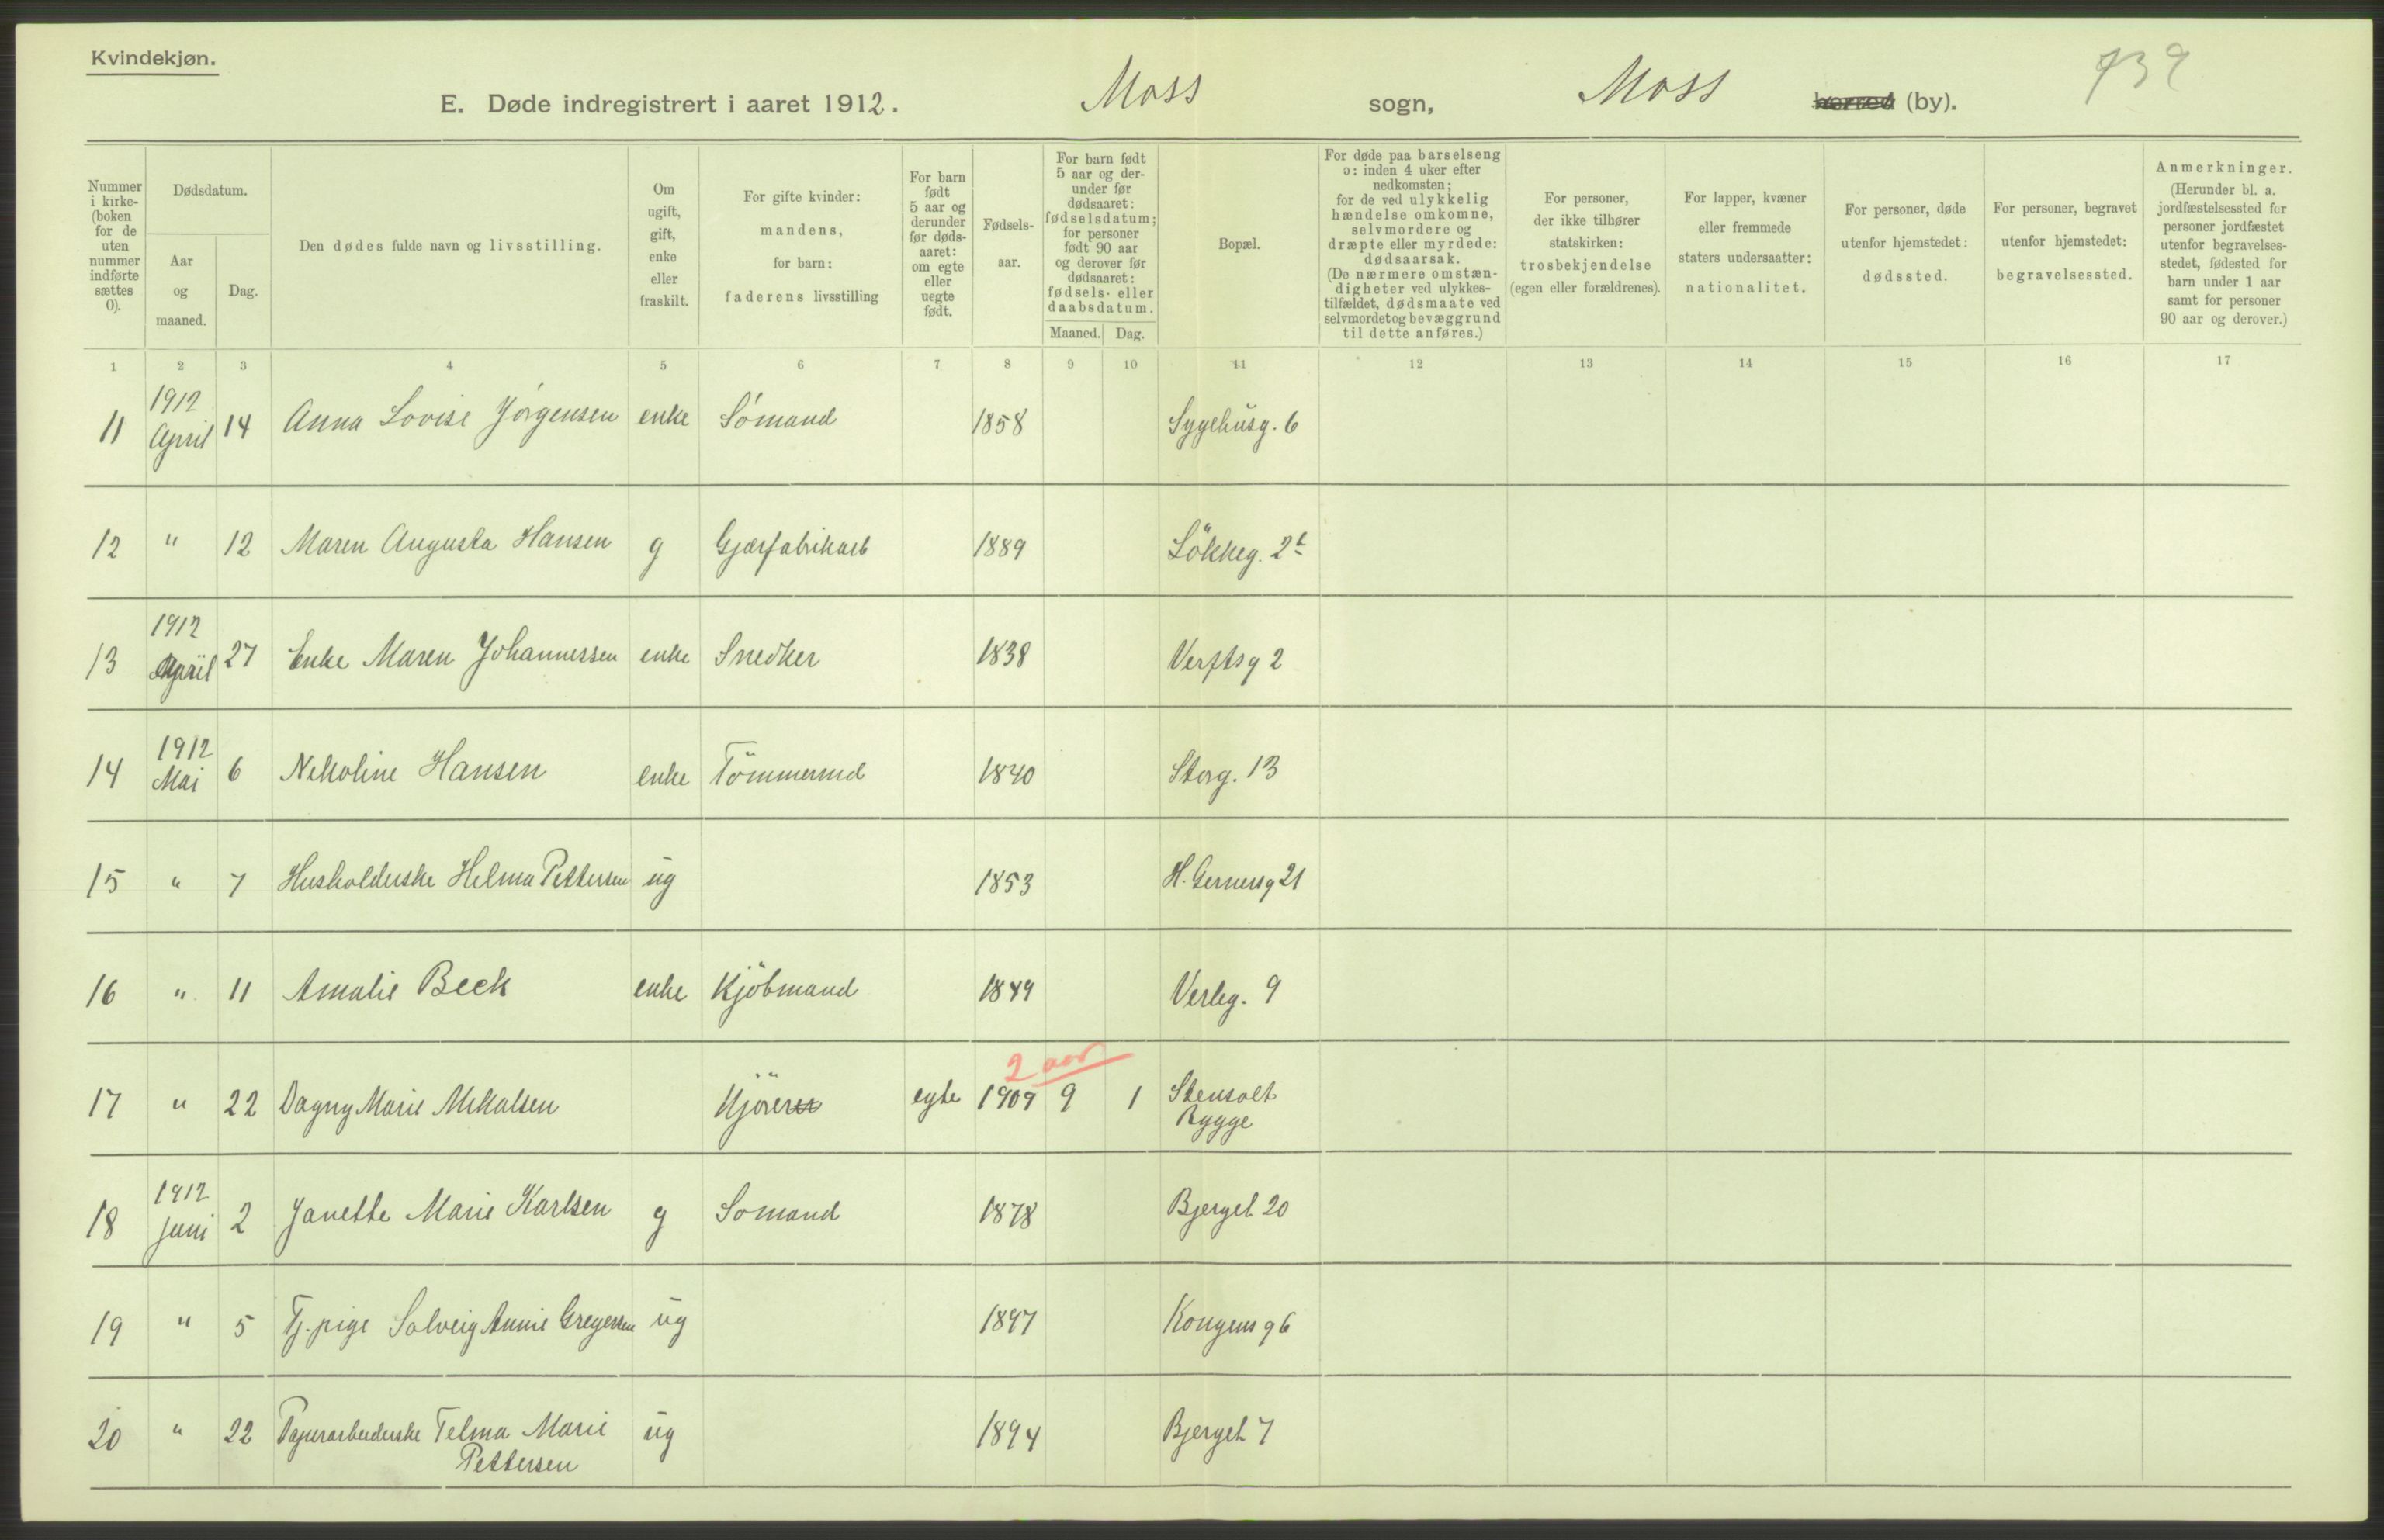 Kvindekjøn.
E. Døde indregistrert i aaret 1912.
Moss sogn, Moss herred (by).
739
Nummer i kirke-(boken for de uten nummer indførte sættes 0).
Dødsdatum.
Aar og maaned.
Dag.
Den dødes fulde navn og livsstilling.
Om ugift, gift, enke eller fraskilt.
For gifte kvinder: mandens, for barn: faderens livsstilling
For barn født 5 aar og derunder før døds-aaret: om egte eller uegte født.
Fødsels-aar.
For barn født 5 aar og der-under før dødsaaret: fødselsdatum; for personer født 90 aar og derover før dødsaaret: fødsels- eller daabsdatum.
Maaned. Dag.
Bopæl.
For døde paa barselseng ɔ: inden 4 uker efter nedkomsten; for de ved ulykkelig hændelse omkomne, selvmordere og dræpte eller myrdede: dødsaarsak. (De nærmere omstæn-digheter ved ulykkes-tilfældet, dødsmaate ved selvmordet og bevæggrund til dette anføres.)
For personer, der ikke tilhører statskirken: trosbekjendelse (egen eller forældrenes).
For lapper, kvæner eller fremmede staters undersaatter: nationalitet.
For personer, døde utenfor hjemstedet: dødssted.
For personer, begravet utenfor hjemstedet: begravelsessted.
Anmerkninger. (Herunder bl. a. jordfæstelsessted for personer jordfæstet utenfor begravelses-stedet, fødested for barn under 1 aar samt for personer 90 aar og derover.)
1 2 3 4 5 6 7 8 9 10 11 12 13 14 15 16 17
11 1912 April 14 Anna Lovise Jörgensen enke Sömand 1858 Sygehusg. 6
12 " 12 Maren Augusta Hansen g Gjærfabrikarb 1889 Lökkeg. 2
13 1912 April 27 Enke Maren Johannessen enke Snedker 1838 Verftsg 2
14 1912 Mai 6 Nikoline Hansen enke Tömmermd 1840 Storg. 13
15 " 7 Husholderske Helma Pettersen ug 1853 H. Gernersg 21
16 " 11 Amalie Beck enke Kjöbmand 1849 Verleg. 9
2 aar
17 " 22 Dagny Marie Mikalsen Kjörer egte 1909 9 1 Stensolt
Rygge
18 1912 Juni 2 Janette Marie Karlsen g Somand 1878 Bjerget 20
19 " 5 Tj.pige Solveig Annie Gregersen ug 1897 Kongens g 6
20 " 22 Papirarbeiderske Telma Marie ug 1894 Bjerget 7
Pettersen